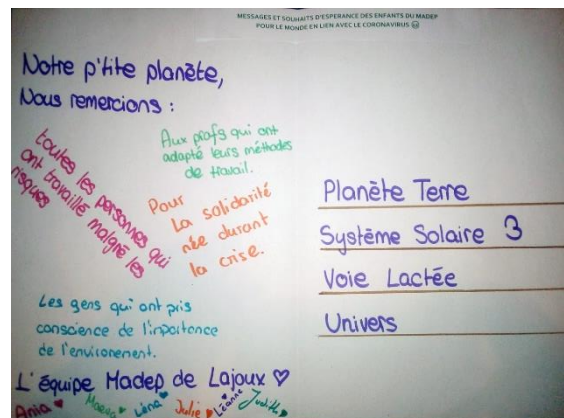 MESSAGES ET SOUHAITS D'ESPERANCE DES ENFANTS DU MADEP
POUR LE MONDE EN LIEN AVEC LE CORONAVIRUS ☺
Notre p'tite planète,
Nous remercions :
Aux profs qui ont
adapté leurs méthodes
de travail.
toutes les personnes qui
ont travaillé malgré les
risques
Pour
La solidarité
née durant
la crise.
Les gens qui ont pris
conscience de l'importance
de l'environement.
L'équipe Madep de Lajoux ♡
Ania ♥ Maeva ♥ Léna ♥ Julie ♥ Léanne ♥ Judith ♥
Planète Terre
Système Solaire 3
Voie Lactée
Univers